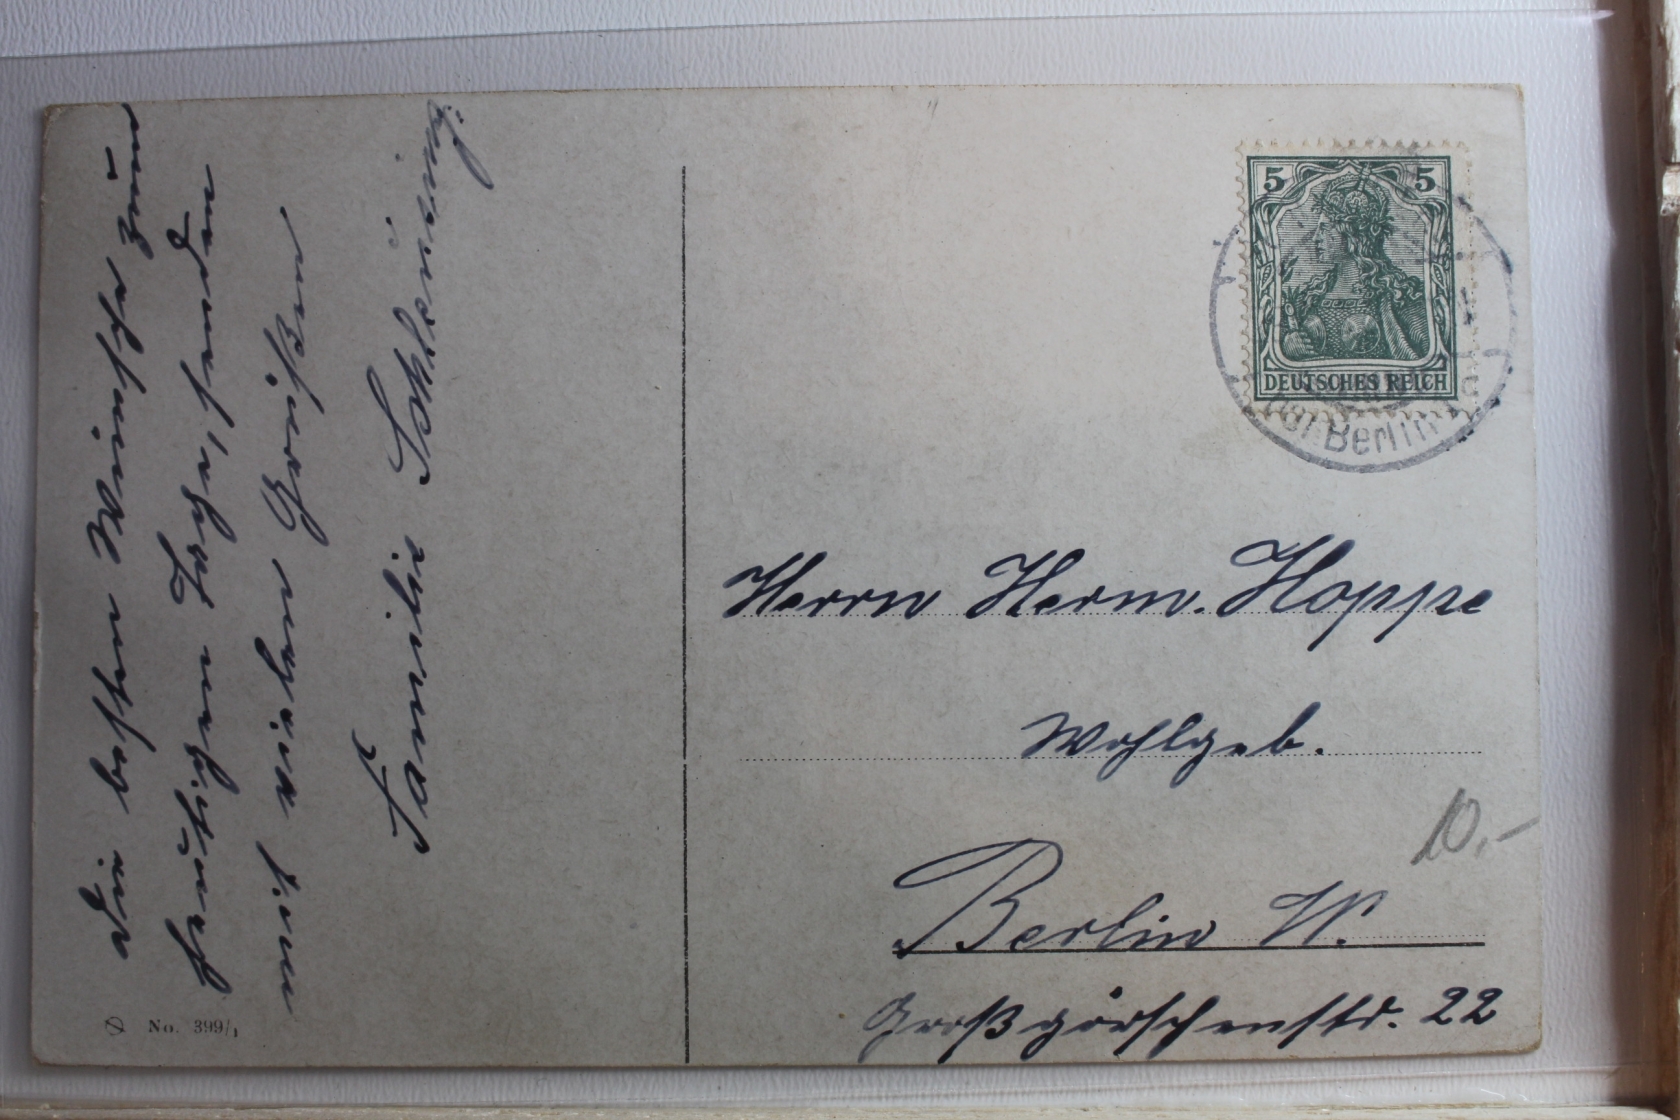 Die besten Wünsche zum
heutigen Tage, senden
mit vielen Grüßen
Familie Schleusing.
No. 399/1
5 5
DEUTSCHES REICH
Berlin
Herrn Herm. Hoppe
Wohlgeb.
Berlin W.
Großgörschenstr. 22
10,-